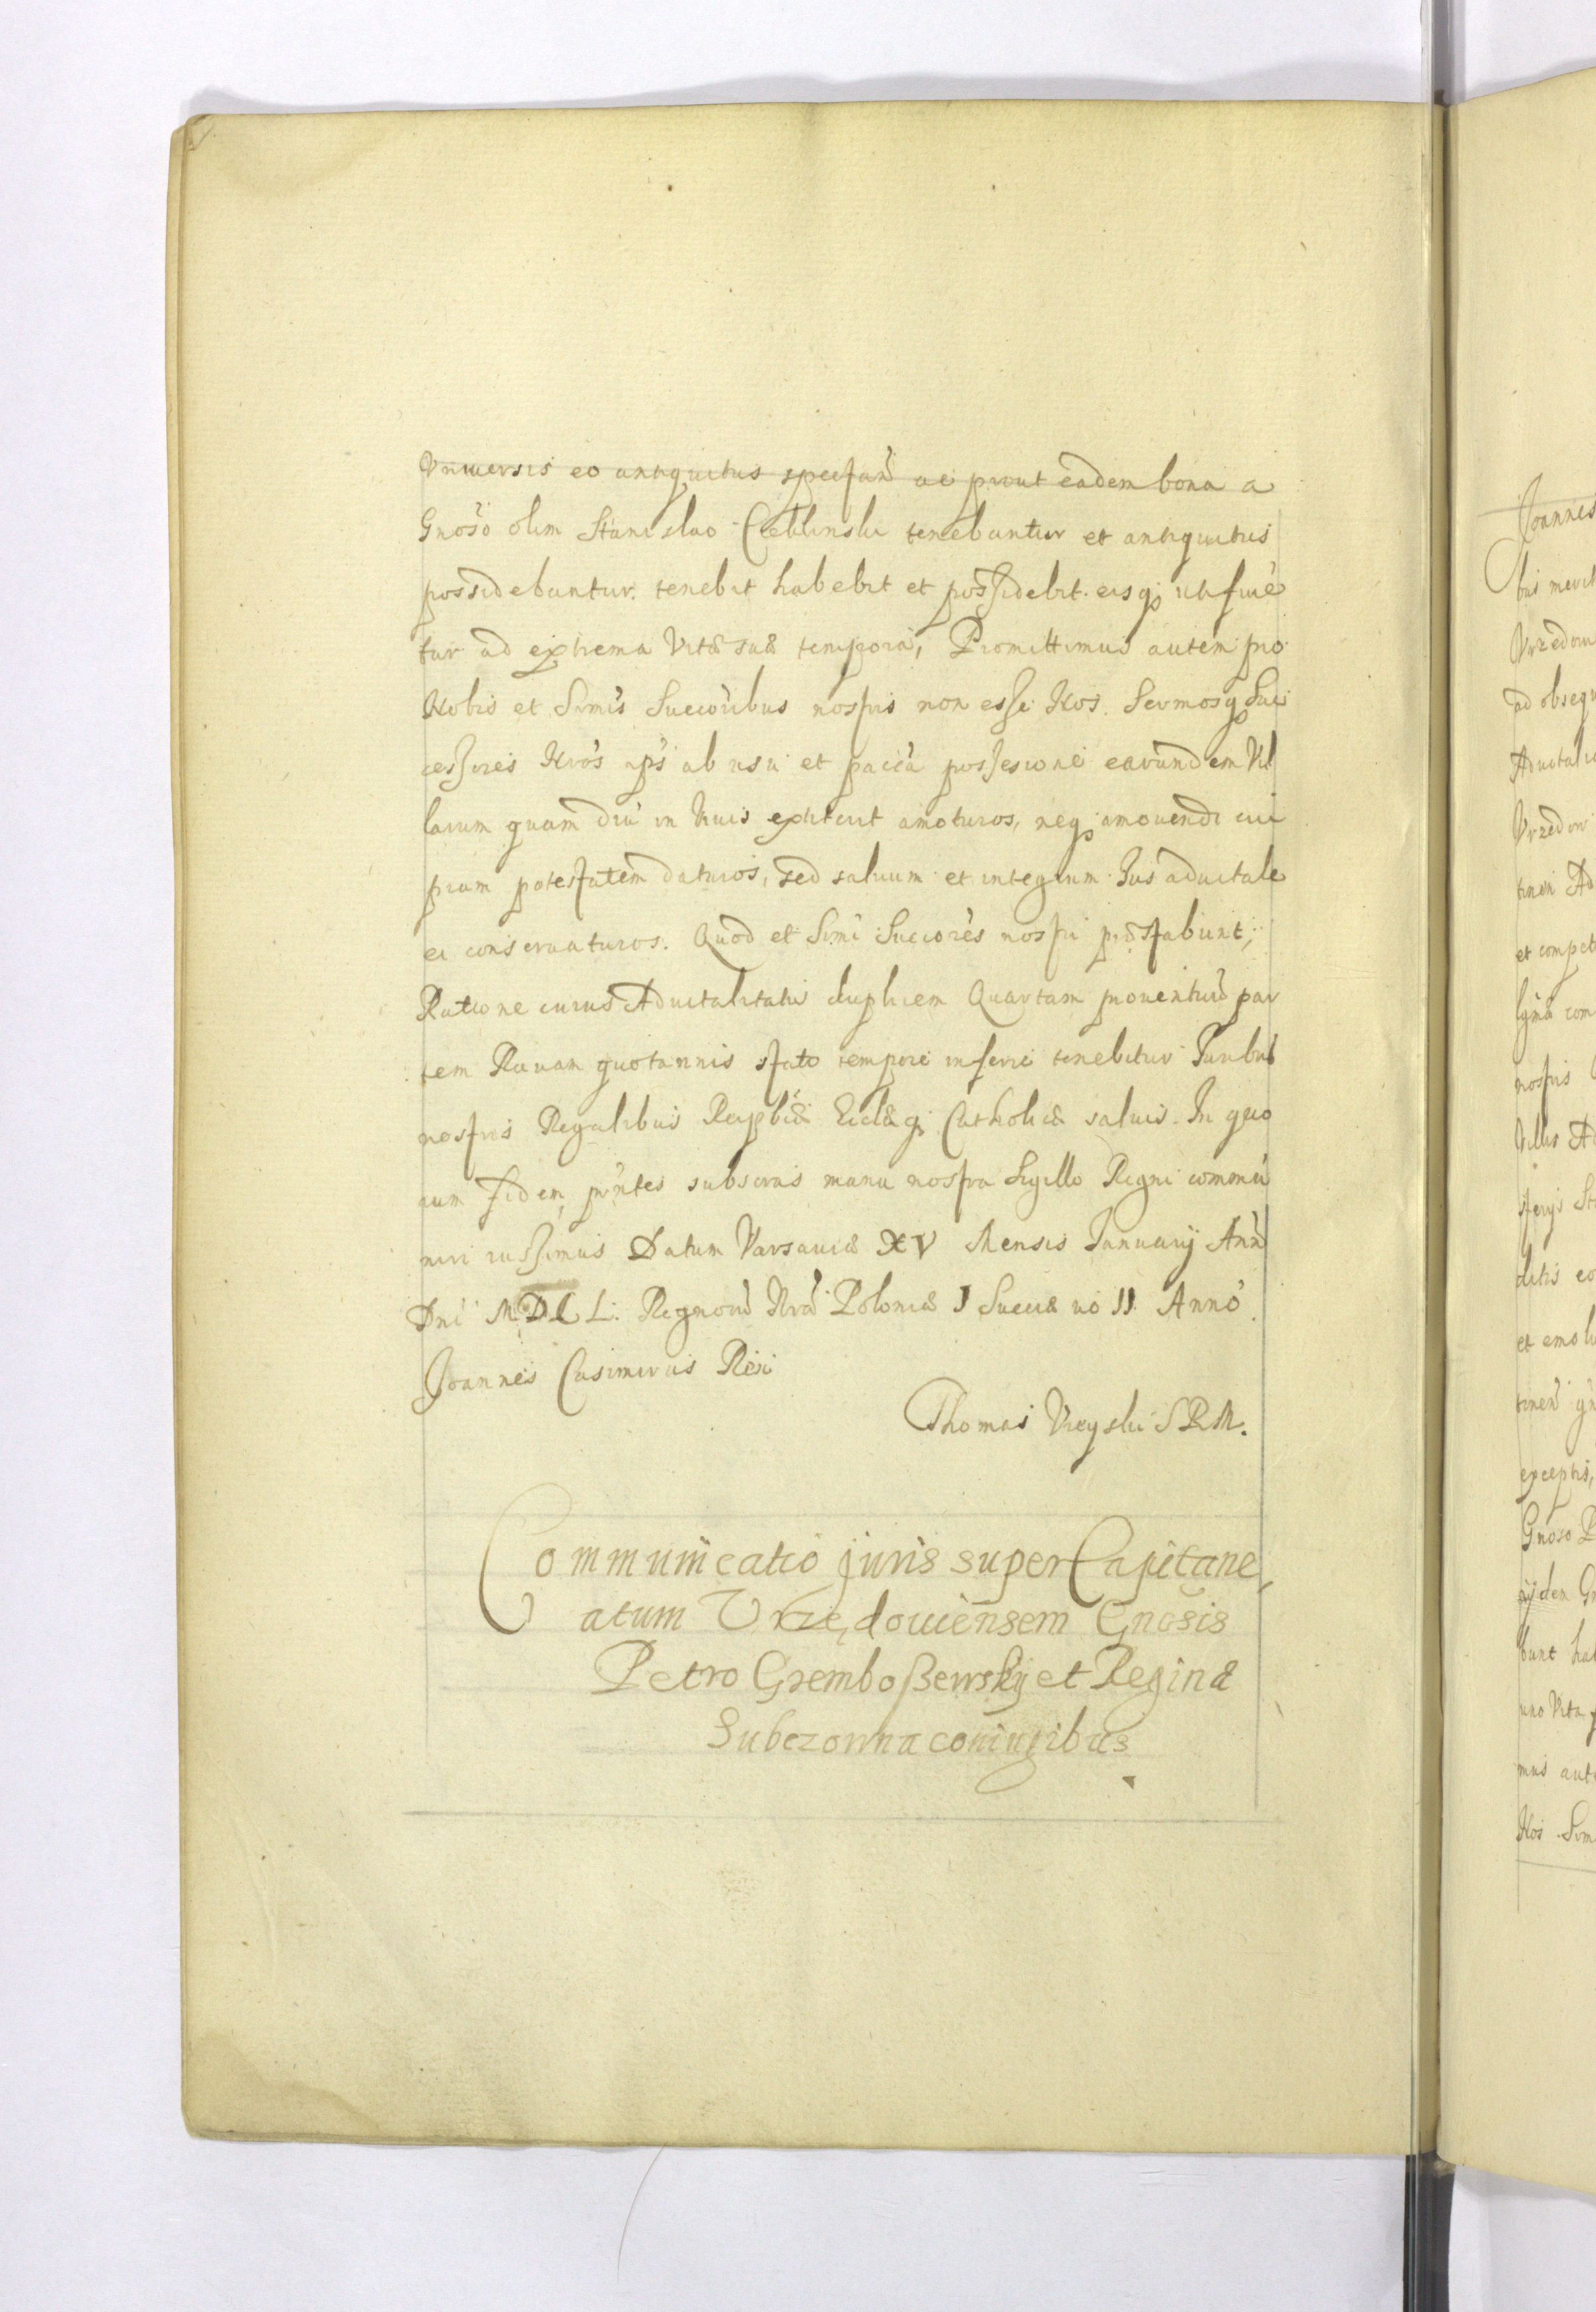 Vniuersis eo antiquitus spectan̄ ac prout eadem bona a
Gnoso olim Stanislao tenebantur et antiquitus
possidebantur. tenebit habebit et possidebit. eisq; utifrue
tur ad extrema Vitæ suæ tempora, Promittimus autem pro
Nobis et Srmis Succoribus nostris non esse Nos. Sermosq; Suc
cessores Nros ips ab usu et pacca possesione earundem Vil
larum quam diu in viuis extiterit amoturos, neq; amouendi cui
piam potestatem daturos, sed saluum et integrum Jus aduitale
ei conseruaturos. Quod et Srmi Succores nostri præstabunt,
Ratione cuius Aduitalitatis duplicem Quartam prouentuū par
tem Rauam quotannis stato tempore inferre tenebitur Juribus
nostris Regalibus Reipbcæ Ecclæq; Catholicæ saluis. In quo
rum fidem pntes subscras manu nostra Sigillo Regni commu
niri iussimus Datum Varsauiæ XV Mensis Januarij Ann
Dni MDCL. Regnorū Nrorū Poloniæ I Sueciæ uo II Anno
Joannes Casimirus Rex
Thomas Vieyski SRM.
Communicatio juris super Capitane
atum Vrzędouiensem Gnosis
Petro Gremboszewskij et Reginæ
Subczowna coniugibus
Joannes
Vrzedow
ad obsequ
Aduitalit
Vrzedow
et compet
nostris
Villis Ad
et emolu
exceptis,
Gnoso P
uno Vita
mus aut
Nos Srm